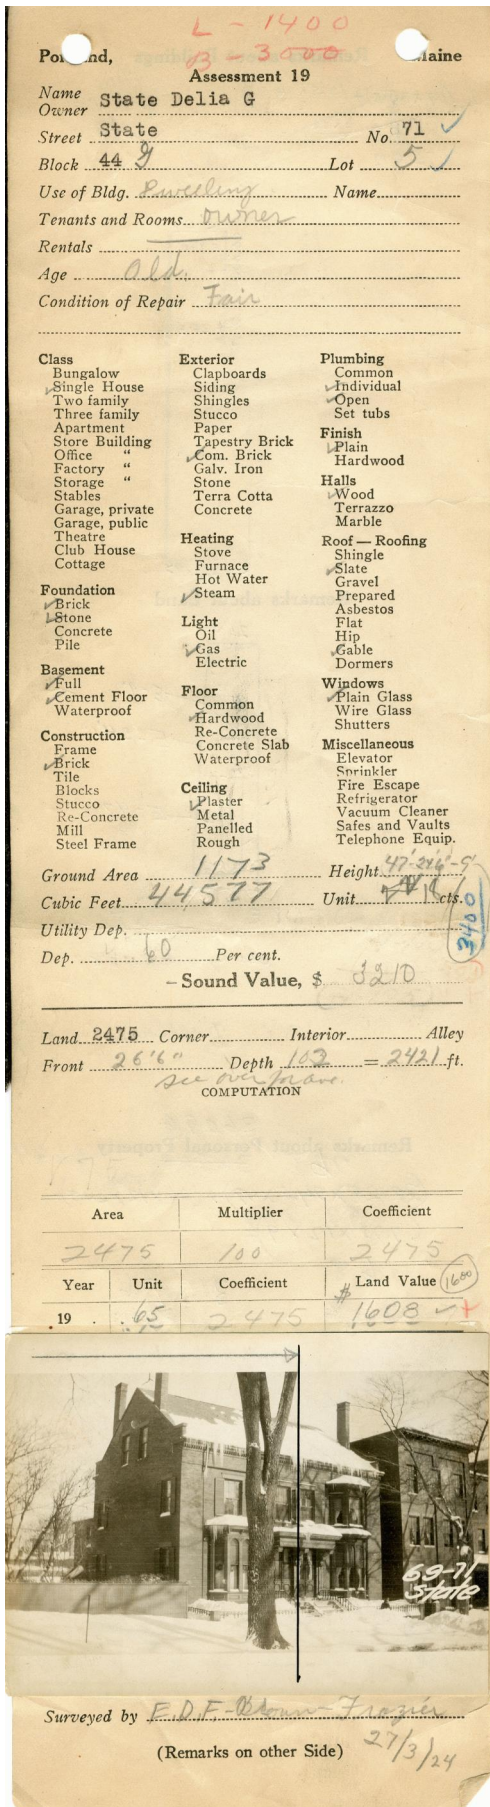 L - 1400
B - 3000
Portland, Maine
Assessment 19
Name
Owner State Delia G
Street State No. 71 ✓
Block 44 G Lot 5 ✓
Use of Bldg. Dwelling Name
Tenants and Rooms owner
Rentals
Age Old.
Condition of Repair Fair
Class
Bungalow
✓Single House
Two family
Three family
Apartment
Store Building
Office "
Factory "
Storage "
Stables
Garage, private
Garage, public
Theatre
Club House
Cottage
Foundation
✓Brick
✓Stone
Concrete
Pile
Basement
✓Full
✓Cement Floor
Waterproof
Construction
Frame
✓Brick
Tile
Blocks
Stucco
Re-Concrete
Mill
Steel Frame
Exterior
Clapboards
Siding
Shingles
Stucco
Paper
Tapestry Brick
✓Com. Brick
Galv. Iron
Stone
Terra Cotta
Concrete
Heating
Stove
Furnace
Hot Water
✓Steam
Light
Oil
✓Gas
Electric
Floor
Common
✓Hardwood
Re-Concrete
Concrete Slab
Waterproof
Ceiling
✓Plaster
Metal
Panelled
Rough
Plumbing
Common
✓Individual
✓Open
Set tubs
Finish
✓Plain
Hardwood
Halls
✓Wood
Terrazzo
Marble
Roof — Roofing
Shingle
✓Slate
Gravel
Prepared
Asbestos
Flat
Hip
✓Gable
Dormers
Windows
✓Plain Glass
Wire Glass
Shutters
Miscellaneous
Elevator
Sprinkler
Fire Escape
Refrigerator
Vacuum Cleaner
Safes and Vaults
Telephone Equip.
Ground Area 1173 Height
Cubic Feet 44577 Unit cts.
3400
Utility Dep.
Dep. 60 Per cent.
– Sound Value, $ 3210
Land 2475 Corner Interior Alley
Front 26'6" Depth 102 = 2421 ft.
see over for ave.
COMPUTATION
Area Multiplier Coefficient
2475 100 2475
Year Unit Coefficient $ Land Value 1600
19 .65 2475 1608 ✓
69-71
State
Surveyed by E.D.F. - Brown - Frazier
(Remarks on other Side) 27/3/24